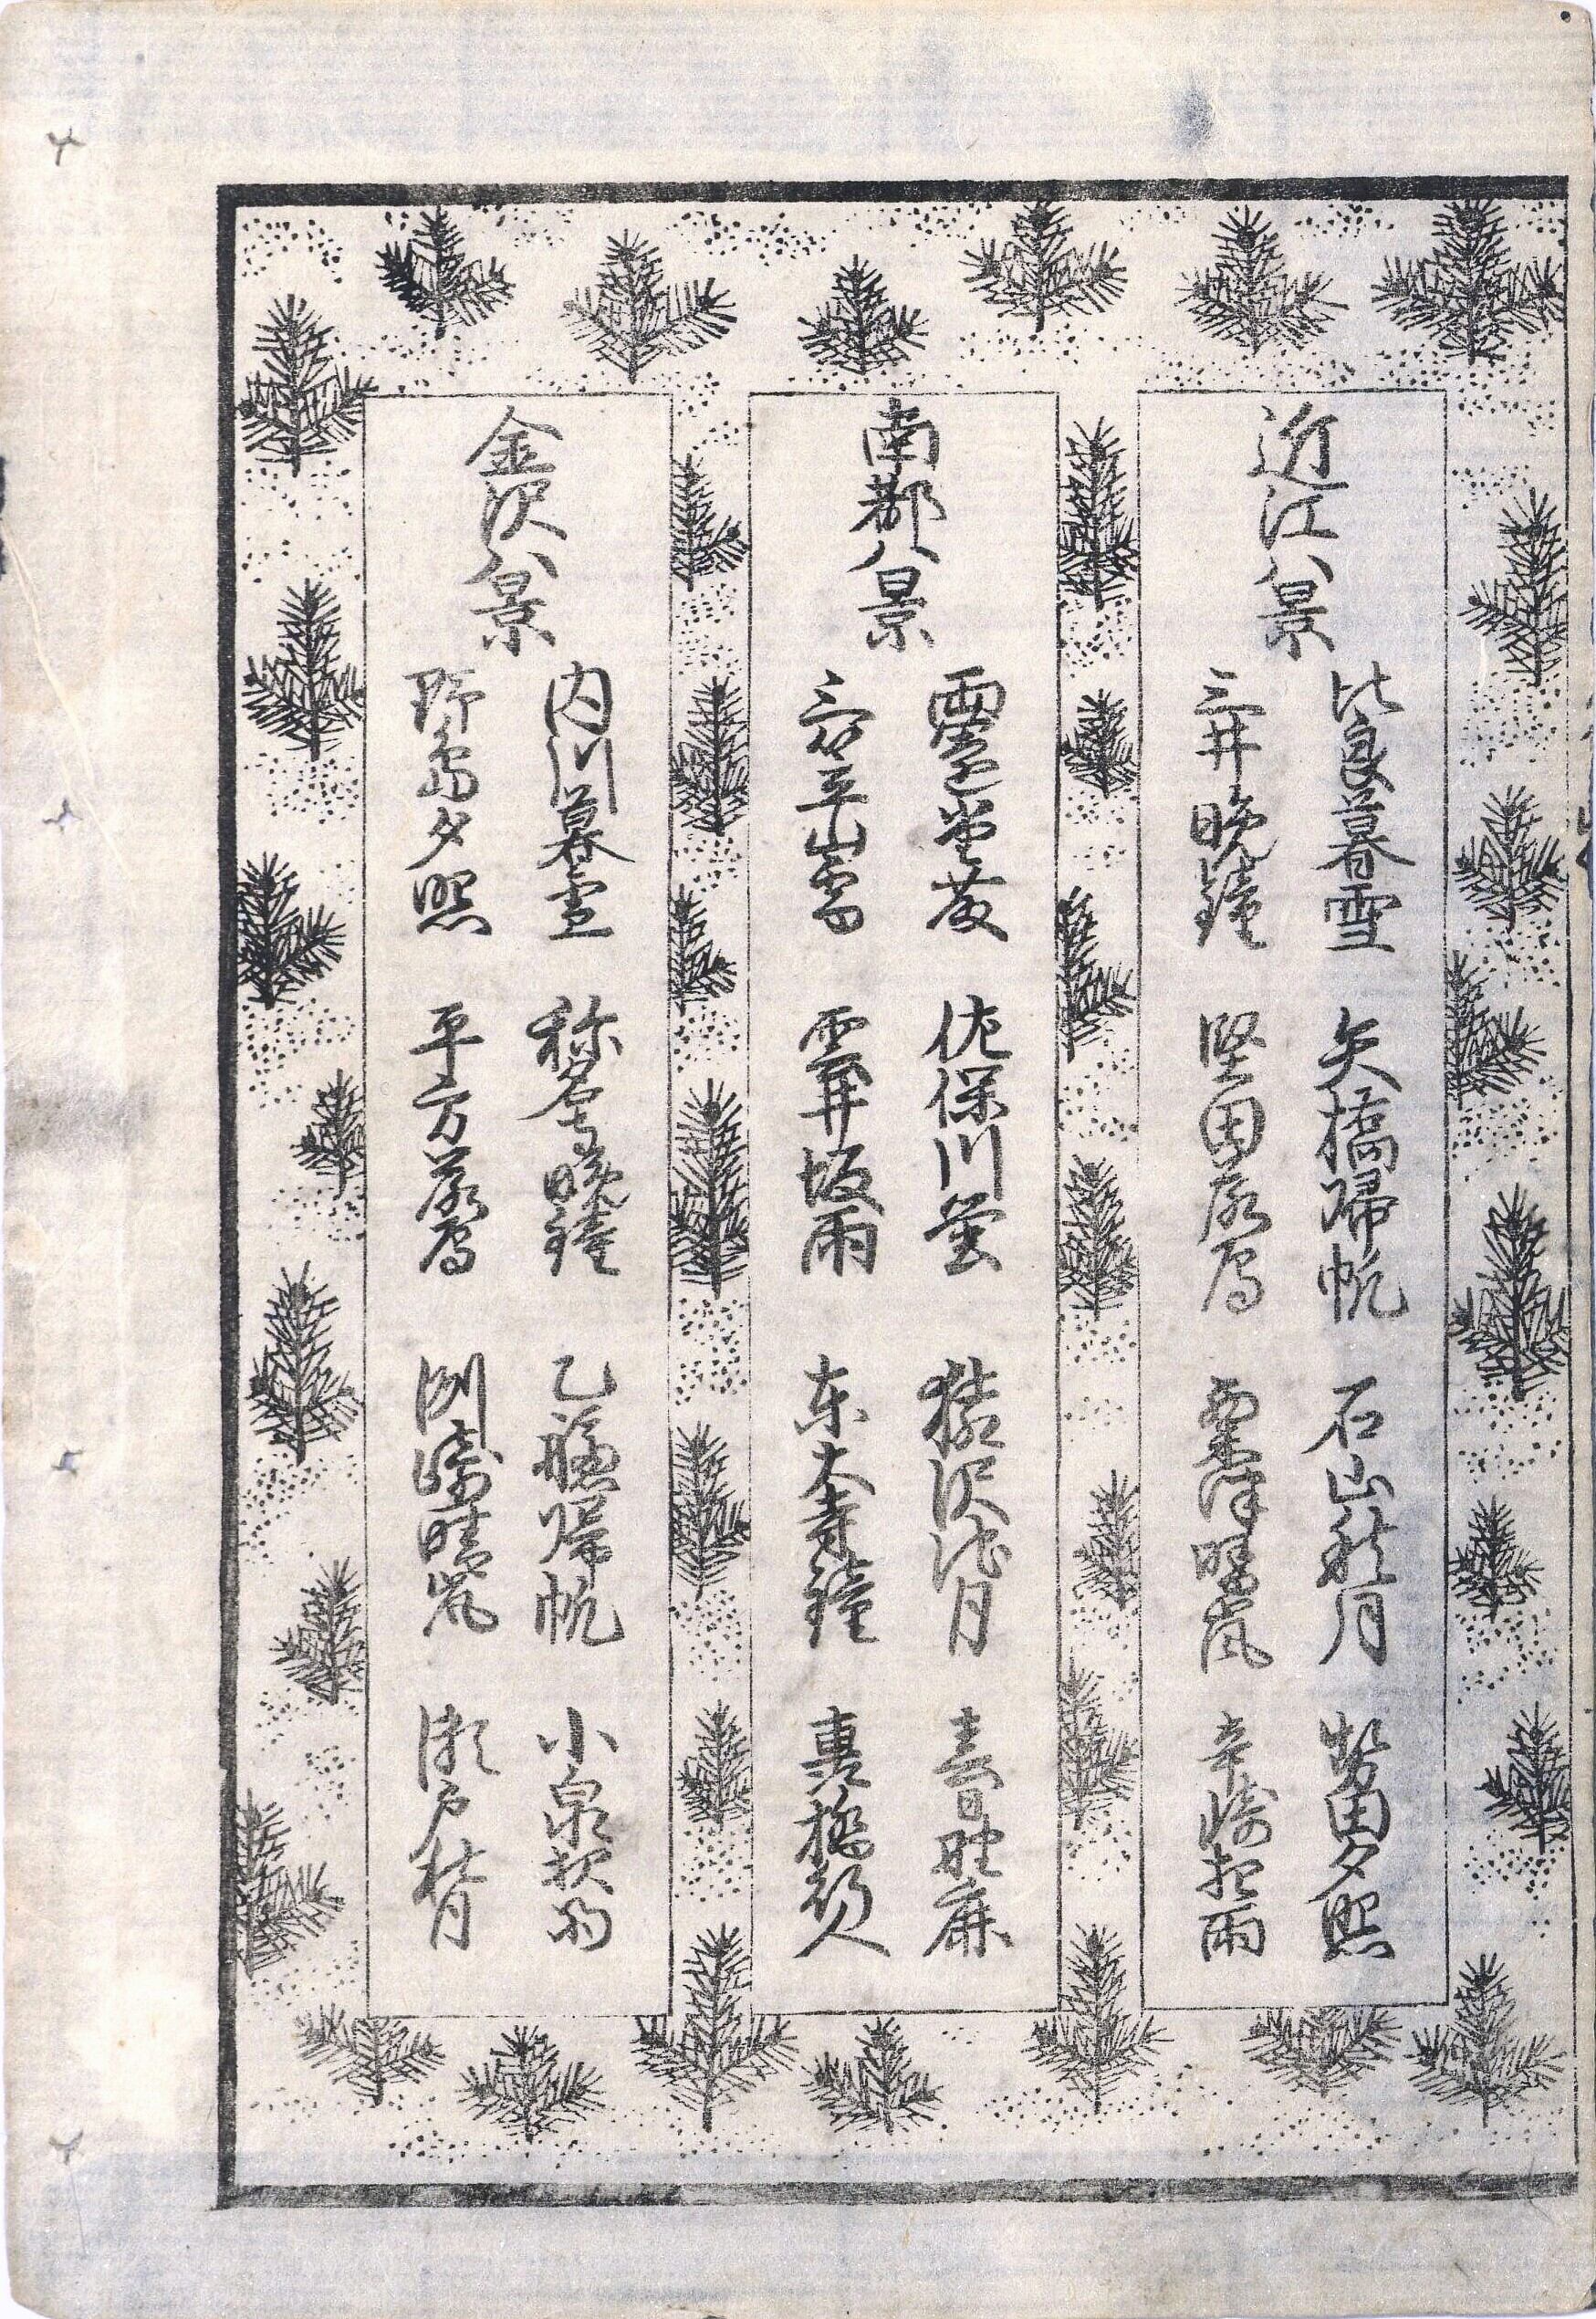 近江八景
比良暮雪 矢橋帰帆 石山秋月 勢田夕照
三井晩鐘 堅田落雁 粟津晴嵐 辛崎夜雨
南都八景
堂藤 佐保川蛍 猿沢池月 春日野鹿
三笠山雪 雲井坂雨 东大寺鐘 橋旅人
金沢八景
内川暮雪 称名寺晩鐘 乙艫帰帆 小泉夜雨
野島夕照 平方落雁 洲崎晴嵐 瀬戸秋月